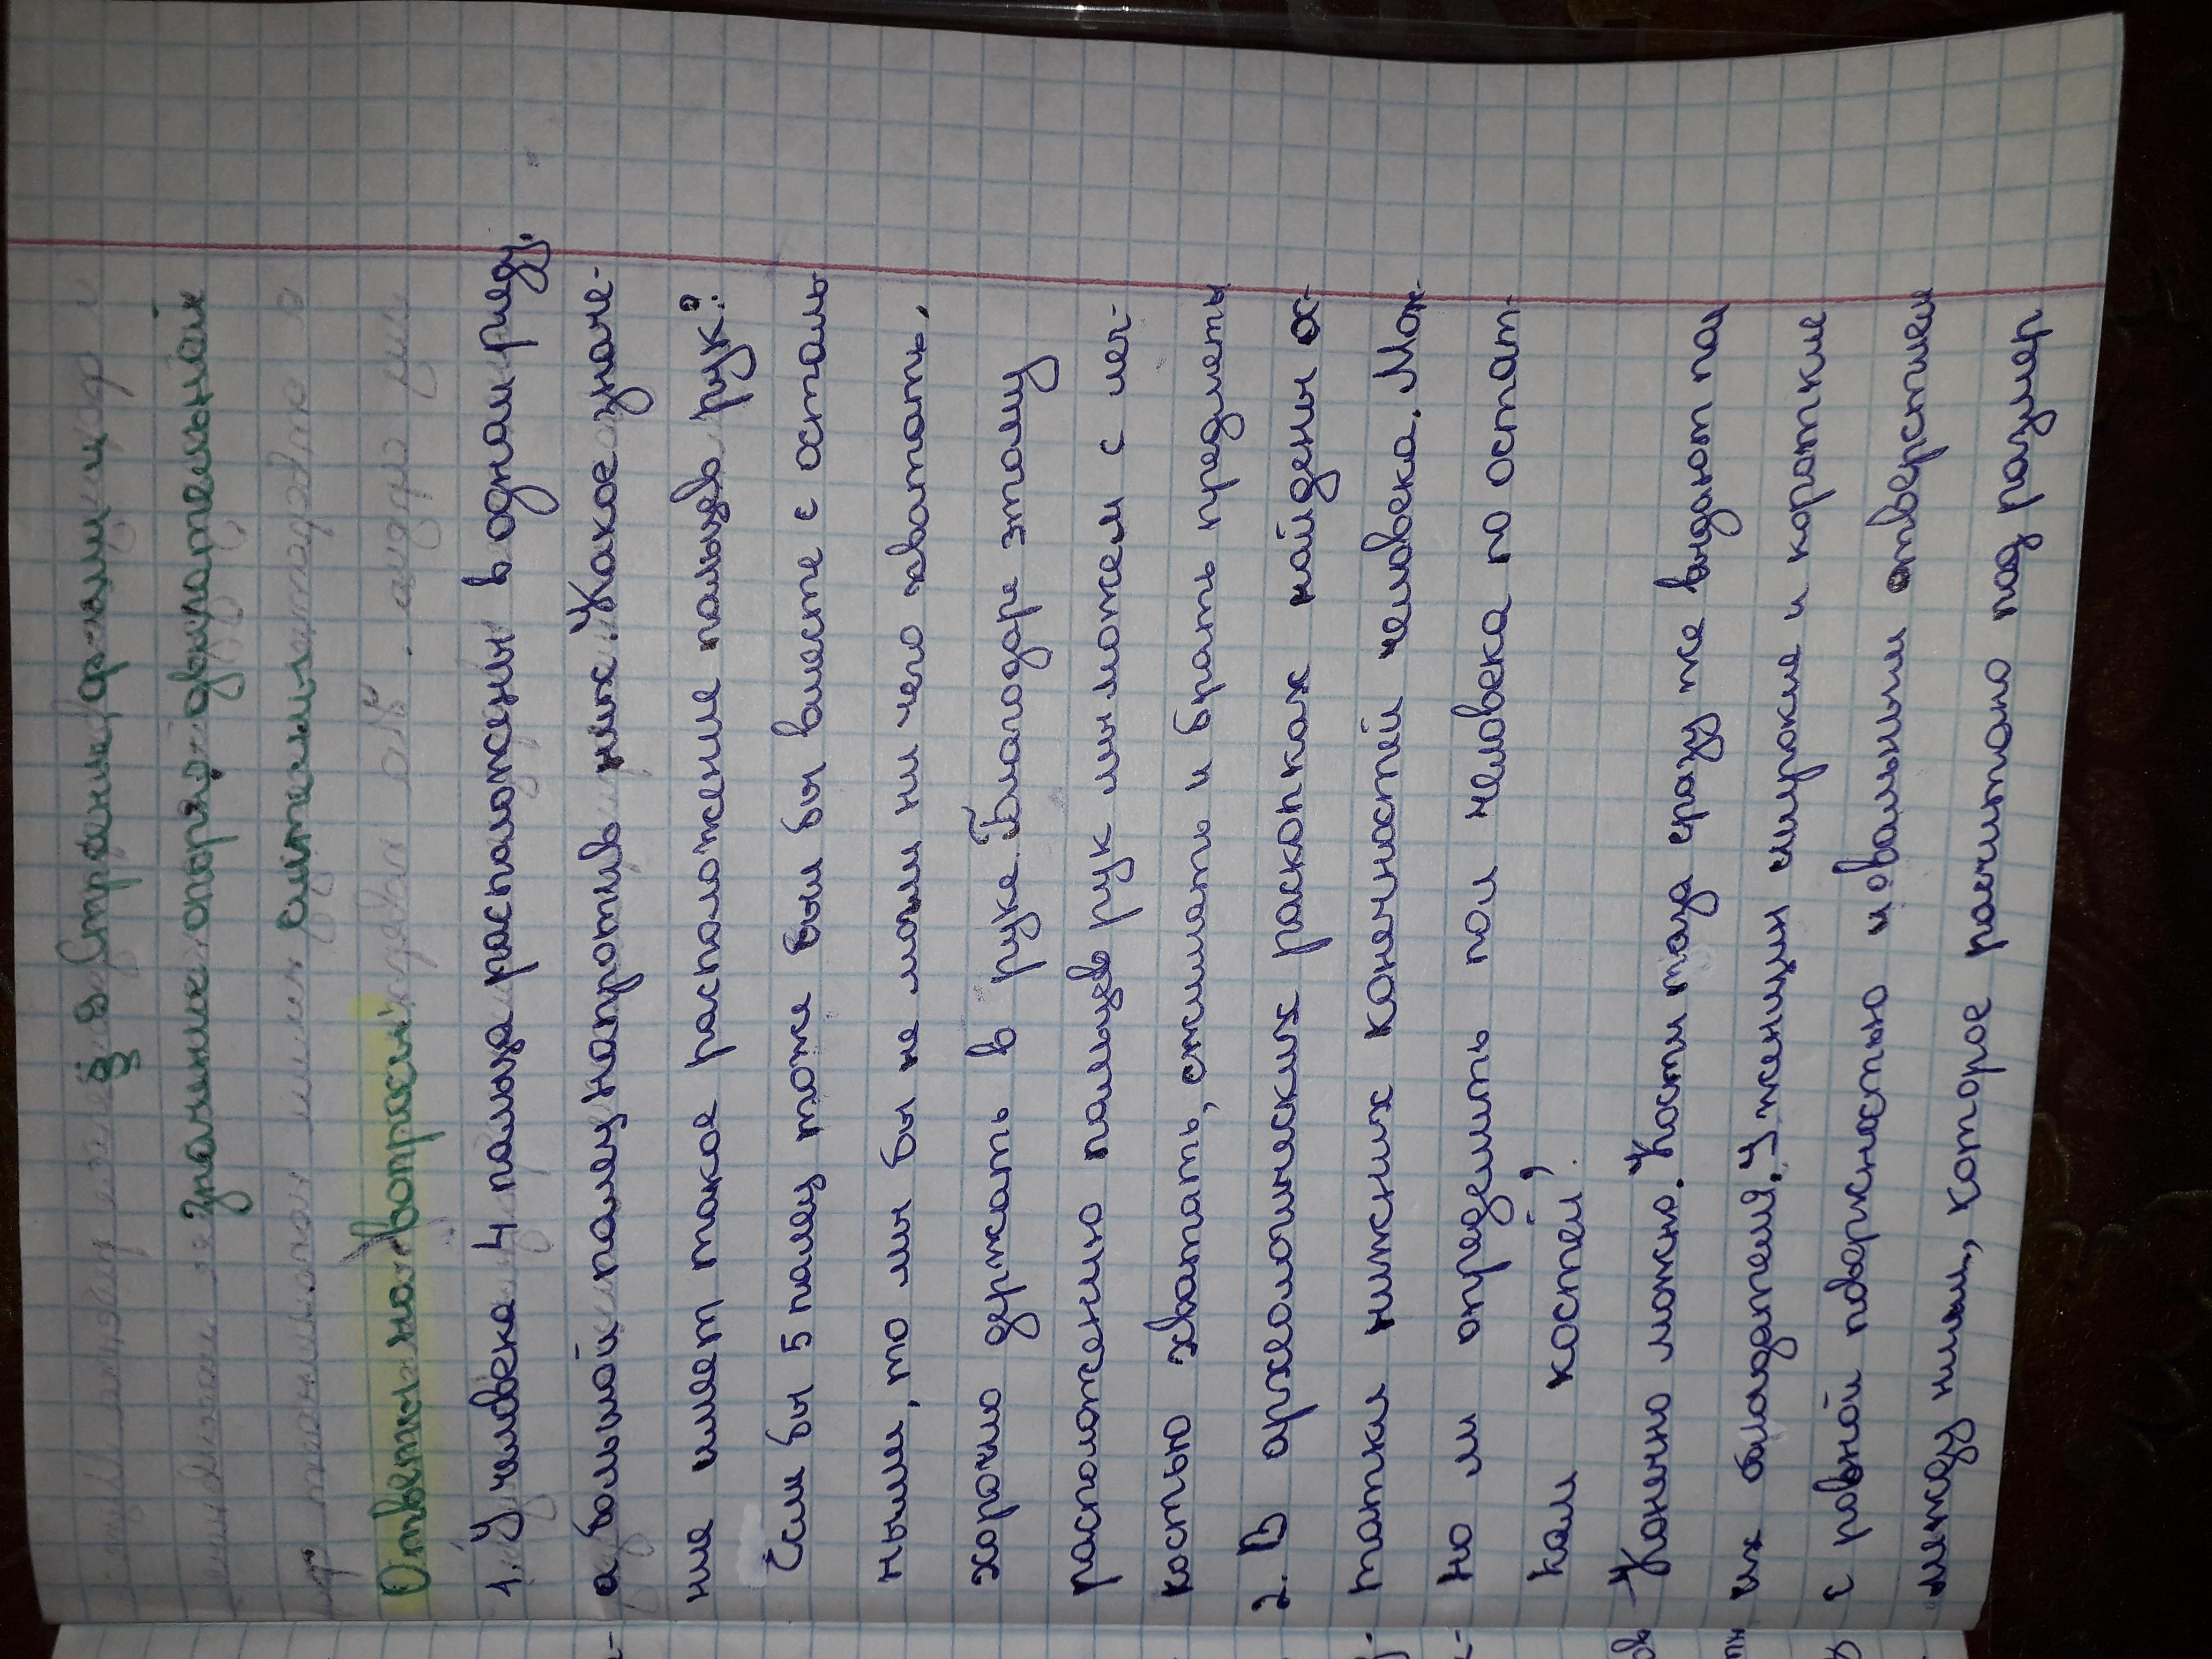 § 8 Строение, функции и
значение опорно-двигательной
системы
Ответы на вопросы
1. У человека 4 пальца расположены в одном ряду,
а большой палец напротив них. Какое значе-
ние имеет такое расположение пальцев рук?
Если бы 5 палец тоже был бы вместе с осталь
ными, то мы бы не могли ни чего хватать,
хорошо держать в руке. Благодоря этому
расположению пальцев рук мы можем с лег-
костью хватать, сжимать и брать предметы
2. В археологических раскопках найдены ос-
татки нижних конечностей человека. Мож-
но ли определить пол человека по остат-
кам костей?
Конечно можно. Кости таза сразу же выдают пол
их обладателя. У женщин широкие и короткие
с ровной поверхностью и овальным отверстием
между ними, которое расчитано под размер